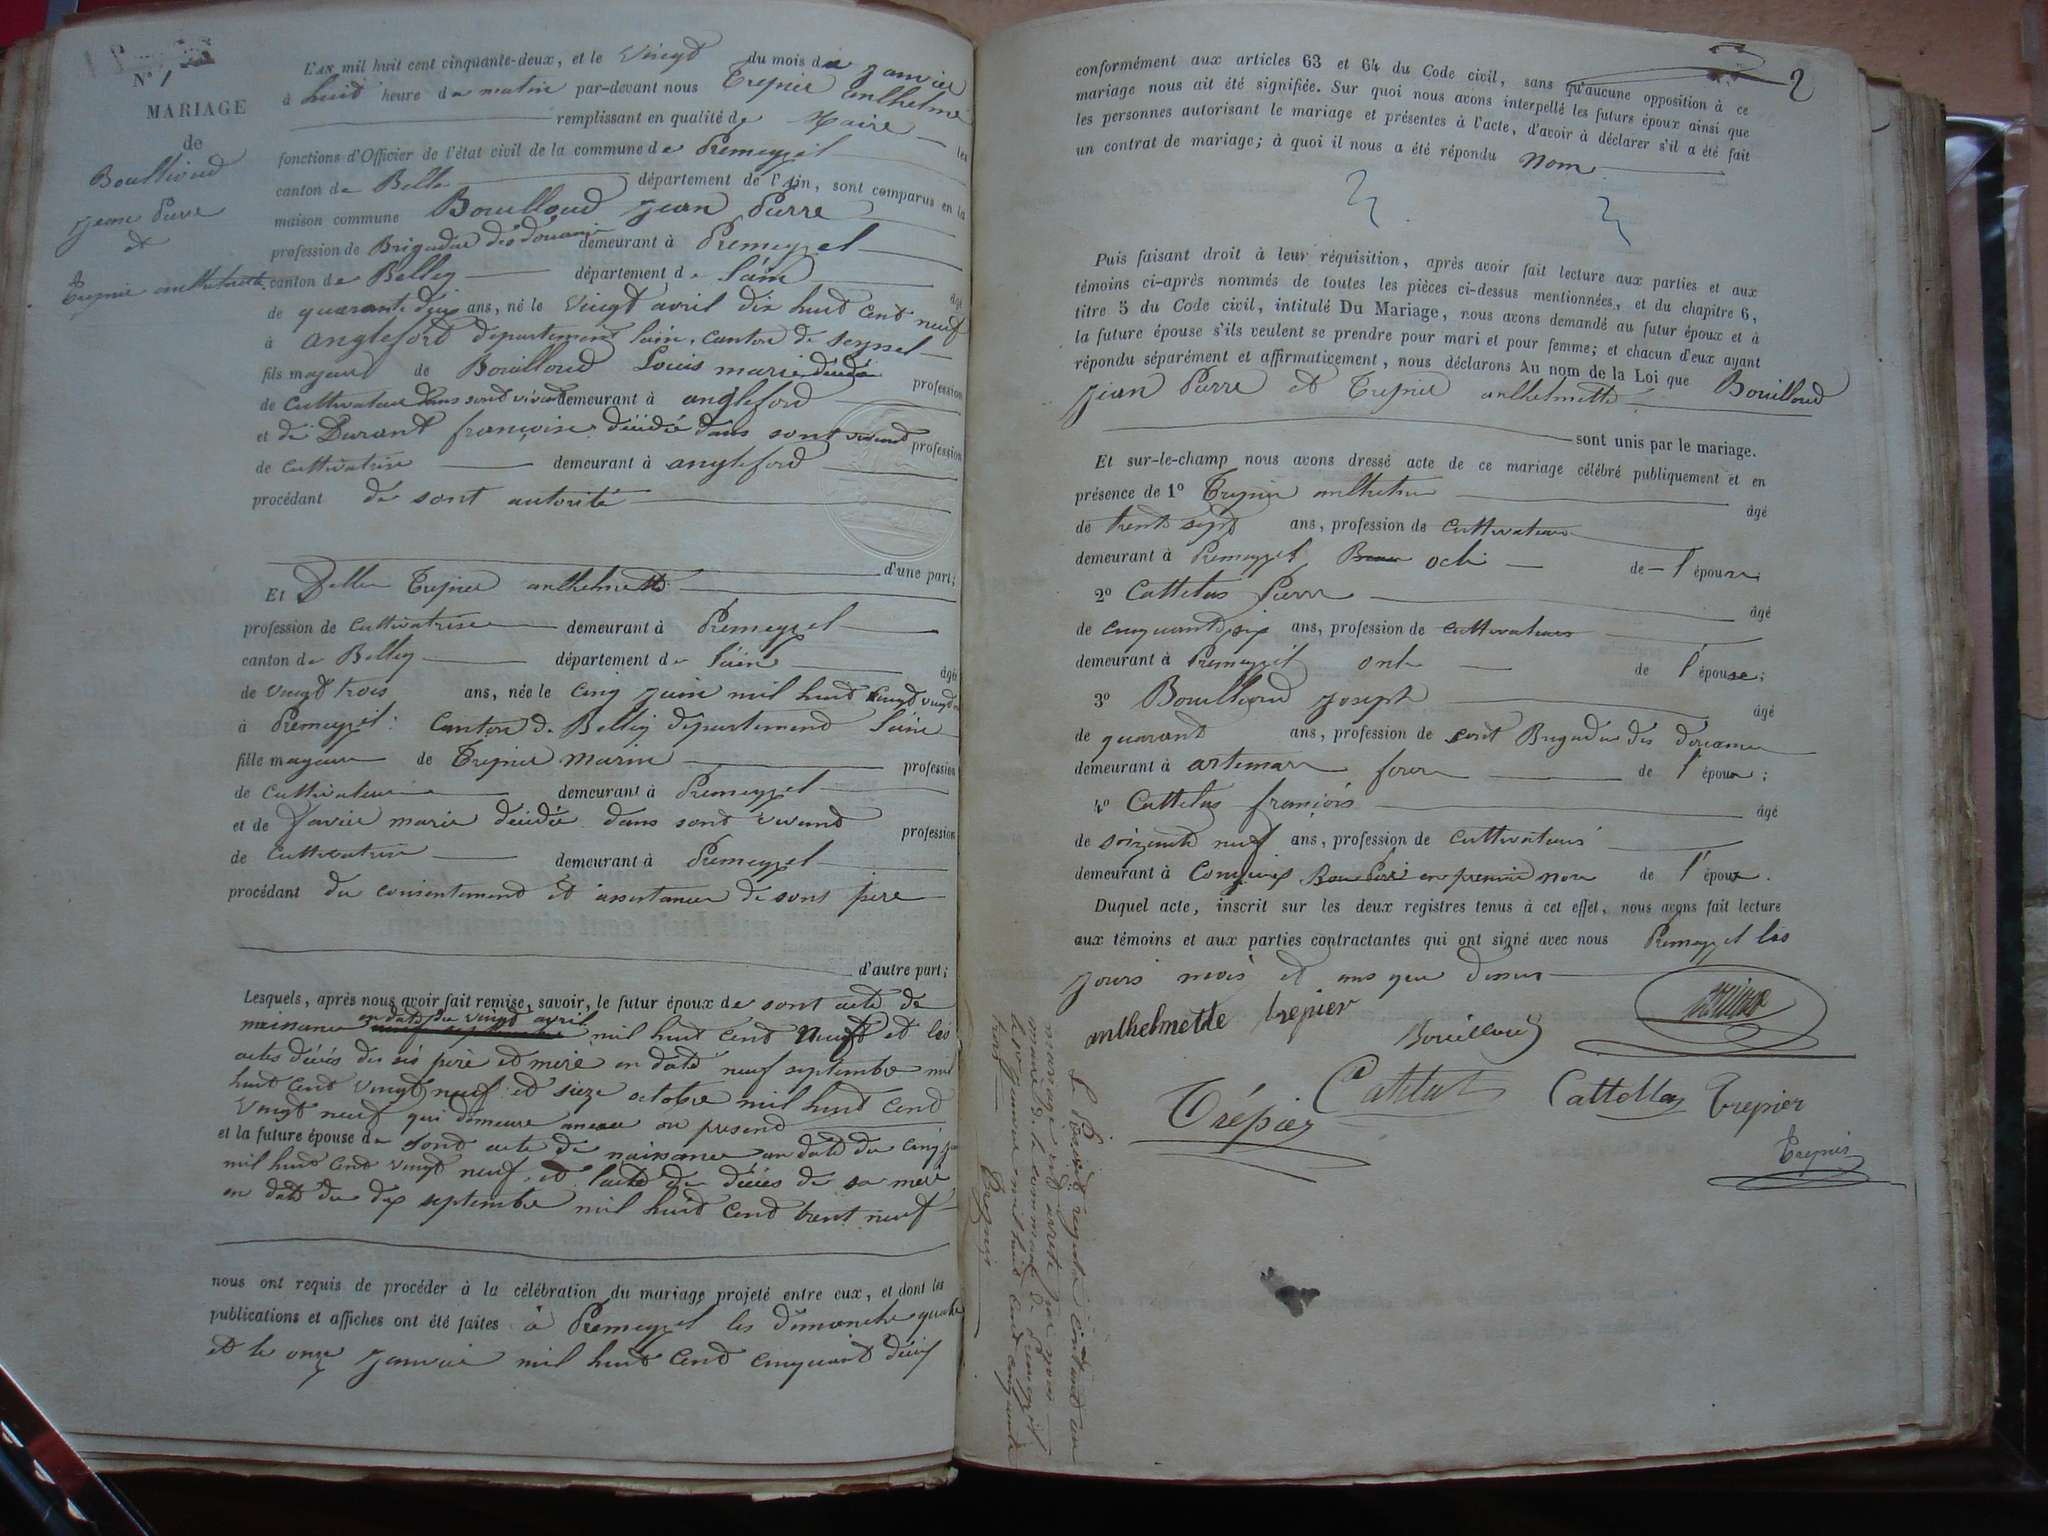 N° 1
MARIAGE
de
Boullioud
Jean Pierre
et
Trepier anthelmette
L'AN mil huit cent cinquante-deux, et le vingt du mois de janvier
à huit heure du matin par-devant nous Trepier anthelme
remplissant en qualité de Maire les
fonctions d'Officier de l'état civil de la commune de Premeyzel
canton de Belley département de l'Ain, sont comparus en la
maison commune Bouilloud Jean Pierre
profession de Brigadier des douane demeurant à Premeyzel
canton de Belley département de lain âgé
de quarante deux ans, né le vingt avril dix huit cent neuf
à anglefort département lain, canton de seyssel
fils majeur de Bouilloud Louis marie décédé profession
de Cultivateur dans sont vivant demeurant à angleford
et de Durant françoise décédée dans sont vivant profession
de cultivatrise demeurant à angleford
procédant de sont autorité
d'une part;
Et Delle Trepier anthelmette
profession de cultivatrise demeurant à Premeyzel
canton de Belley département de lain âgée
de vingt trois ans, née le cinq juin mil huit cent vingt
à Premeyzel Canton de Belley département lain
fille majeure de Trepier marin profession
de cultivateur demeurant à Premeyzel
et de Favier marie décédée dans sont vivant profession
de cultivatrise demeurant à Premeyzel
procédant du consentement et assistance de sont père
d'autre part;
Lesquels, après nous avoir fait remise, savoir, le futur époux de sont acte de
naissance en date du vingt avril mil huit cent neuf et les
actes décès des ses père et mère en date neuf septembre mil
huit cent vingt neuf et seize octobre mil huit cent
vingt neuf qui demeure annexé au présent
et la future épouse de sont acte de naissance en date du cinq juin
mil huit cent vingt neuf, et l'acte de décès de sa mère
en date du dix septembre mil huit cent trent neuf
nous ont requis de procéder à la célébration du mariage projeté entre eux, et dont les
publications et affiches ont été faites à Premeyzel les dimanche quatre
et le onze janvier mil huit cent cinquant deux
2
conformément aux articles 63 et 64 du Code civil, sans qu'aucune opposition à ce
mariage nous ait été signifiée. Sur quoi nous avons interpellé les futurs époux ainsi que
les personnes autorisant le mariage et présentes à l'acte, d'avoir à déclarer s'il a été fait
un contrat de mariage; à quoi il nous a été répondu Nom
Puis faisant droit à leur réquisition, après avoir fait lecture aux parties et aux
témoins ci-après nommés de toutes les pièces ci-dessus mentionnées, et du chapitre 6,
titre 5 du Code civil, intitulé Du Mariage, nous avons demandé au futur époux et à
la future épouse s'ils veulent se prendre pour mari et pour femme; et chacun d'eux ayant
répondu séparément et affirmativement, nous déclarons Au nom de la Loi que Bouilloud
Jean Pierre et Trepier anthelmette
sont unis par le mariage.
Et sur-le-champ nous avons dressé acte de ce mariage célébré publiquement et en
présence de 1° Trepier anthelme âgé
de trente sept ans, profession de cultivateur
demeurant à Premeyzel de l'épouse;
2° Cattelas Pierre âgé
de cinquante six ans, profession de cultivateur
demeurant à Premeyzel oncle de l'épouse;
3° Bouillioud Joseph âgé
de quarant ans, profession de sont Brigadier des douane
demeurant à artemare frere de l'époux;
4° Cattelas françois âgé
de soizante neuf ans, profession de cultivateur
demeurant à de l'époux.
Duquel acte, inscrit sur les deux registres tenus à cet effet, nous avons fait lecture
aux témoins et aux parties contractantes qui ont signé avec nous Premeyzel les
jours mois et ans que dessus
anthelmette trepier
Bouilloud
Trépier Cattelas Cattellas Trepier
Trepier
Le Présent registre contenant un
mariage été arrêté par nous
maire de la commune de Premeyzel
janvier mil huit cent cinquante
trois
Trepier